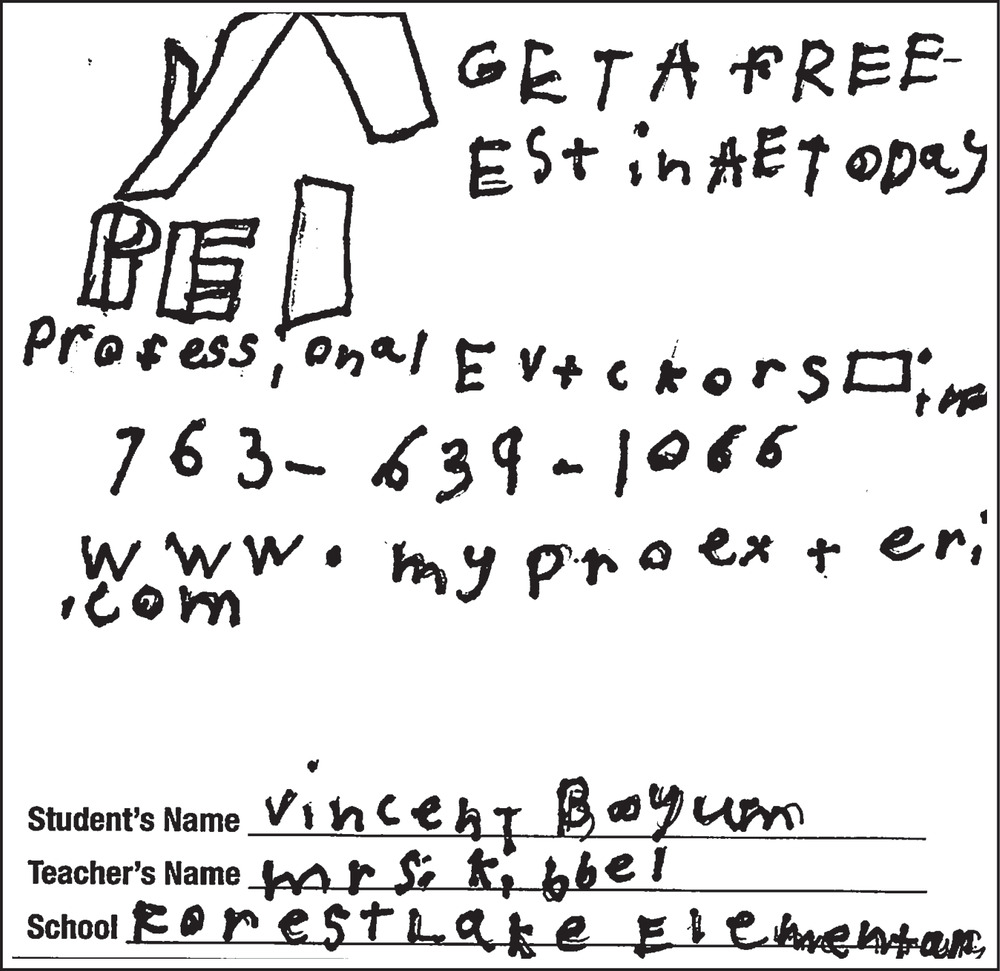 GET A FREE
EStinAE TODay
PE
professional Evtckors inc
763-639-1066
www.myproexteri
.com
Student's Name Vincent Boyum
Teacher's Name mrs. Kibbel
School Forest Lake Elementary